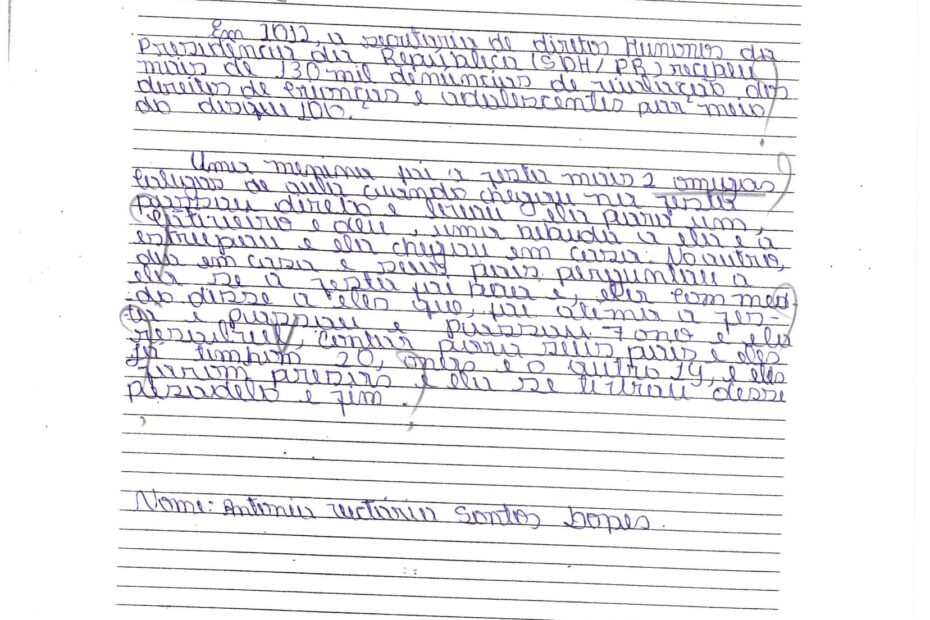 Em 2012, a secretaria de diretos Humanos da
Presidência da República (SDH/PR) recebeu
mais de 130 mil denuncias de violação dos
direitos de crianças e adolescentes por meio
do disque 100.
Uma menina foi a festa mais 2 amigas
colegas de aula cuando chegou na festa
passou direto e levou ela para um,
e deu, uma bebida a ela e a
estrupou e ela chegou em casa. No outro,
dia em casa e seus pais perguntou a
ela se a festa foi boa e, ela com med-
do disse a eles que, foi otima a fes-
ta e passou e passou 7 ano e ela
resouveu, contar para seus pais e eles
ja tinham 20, anos e o outro 19, e eles
foram presos e ela se livrou desse
pesadelo e fim.
Nome: Antonia Victória Santos Lopes.